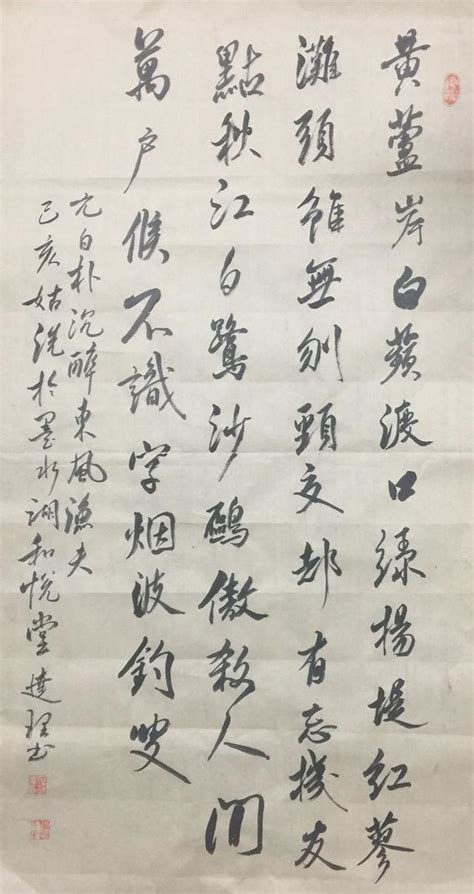 黄蘆岸白蘋渡口綠楊堤紅蓼
灘頭雖無刎頸交却有忘機友
點秋江白鷺沙鷗傲殺人间
萬户候不識字烟波釣叟
元白朴沉醉東風漁夫
己亥姑洗於墨水湖和悦堂達理书